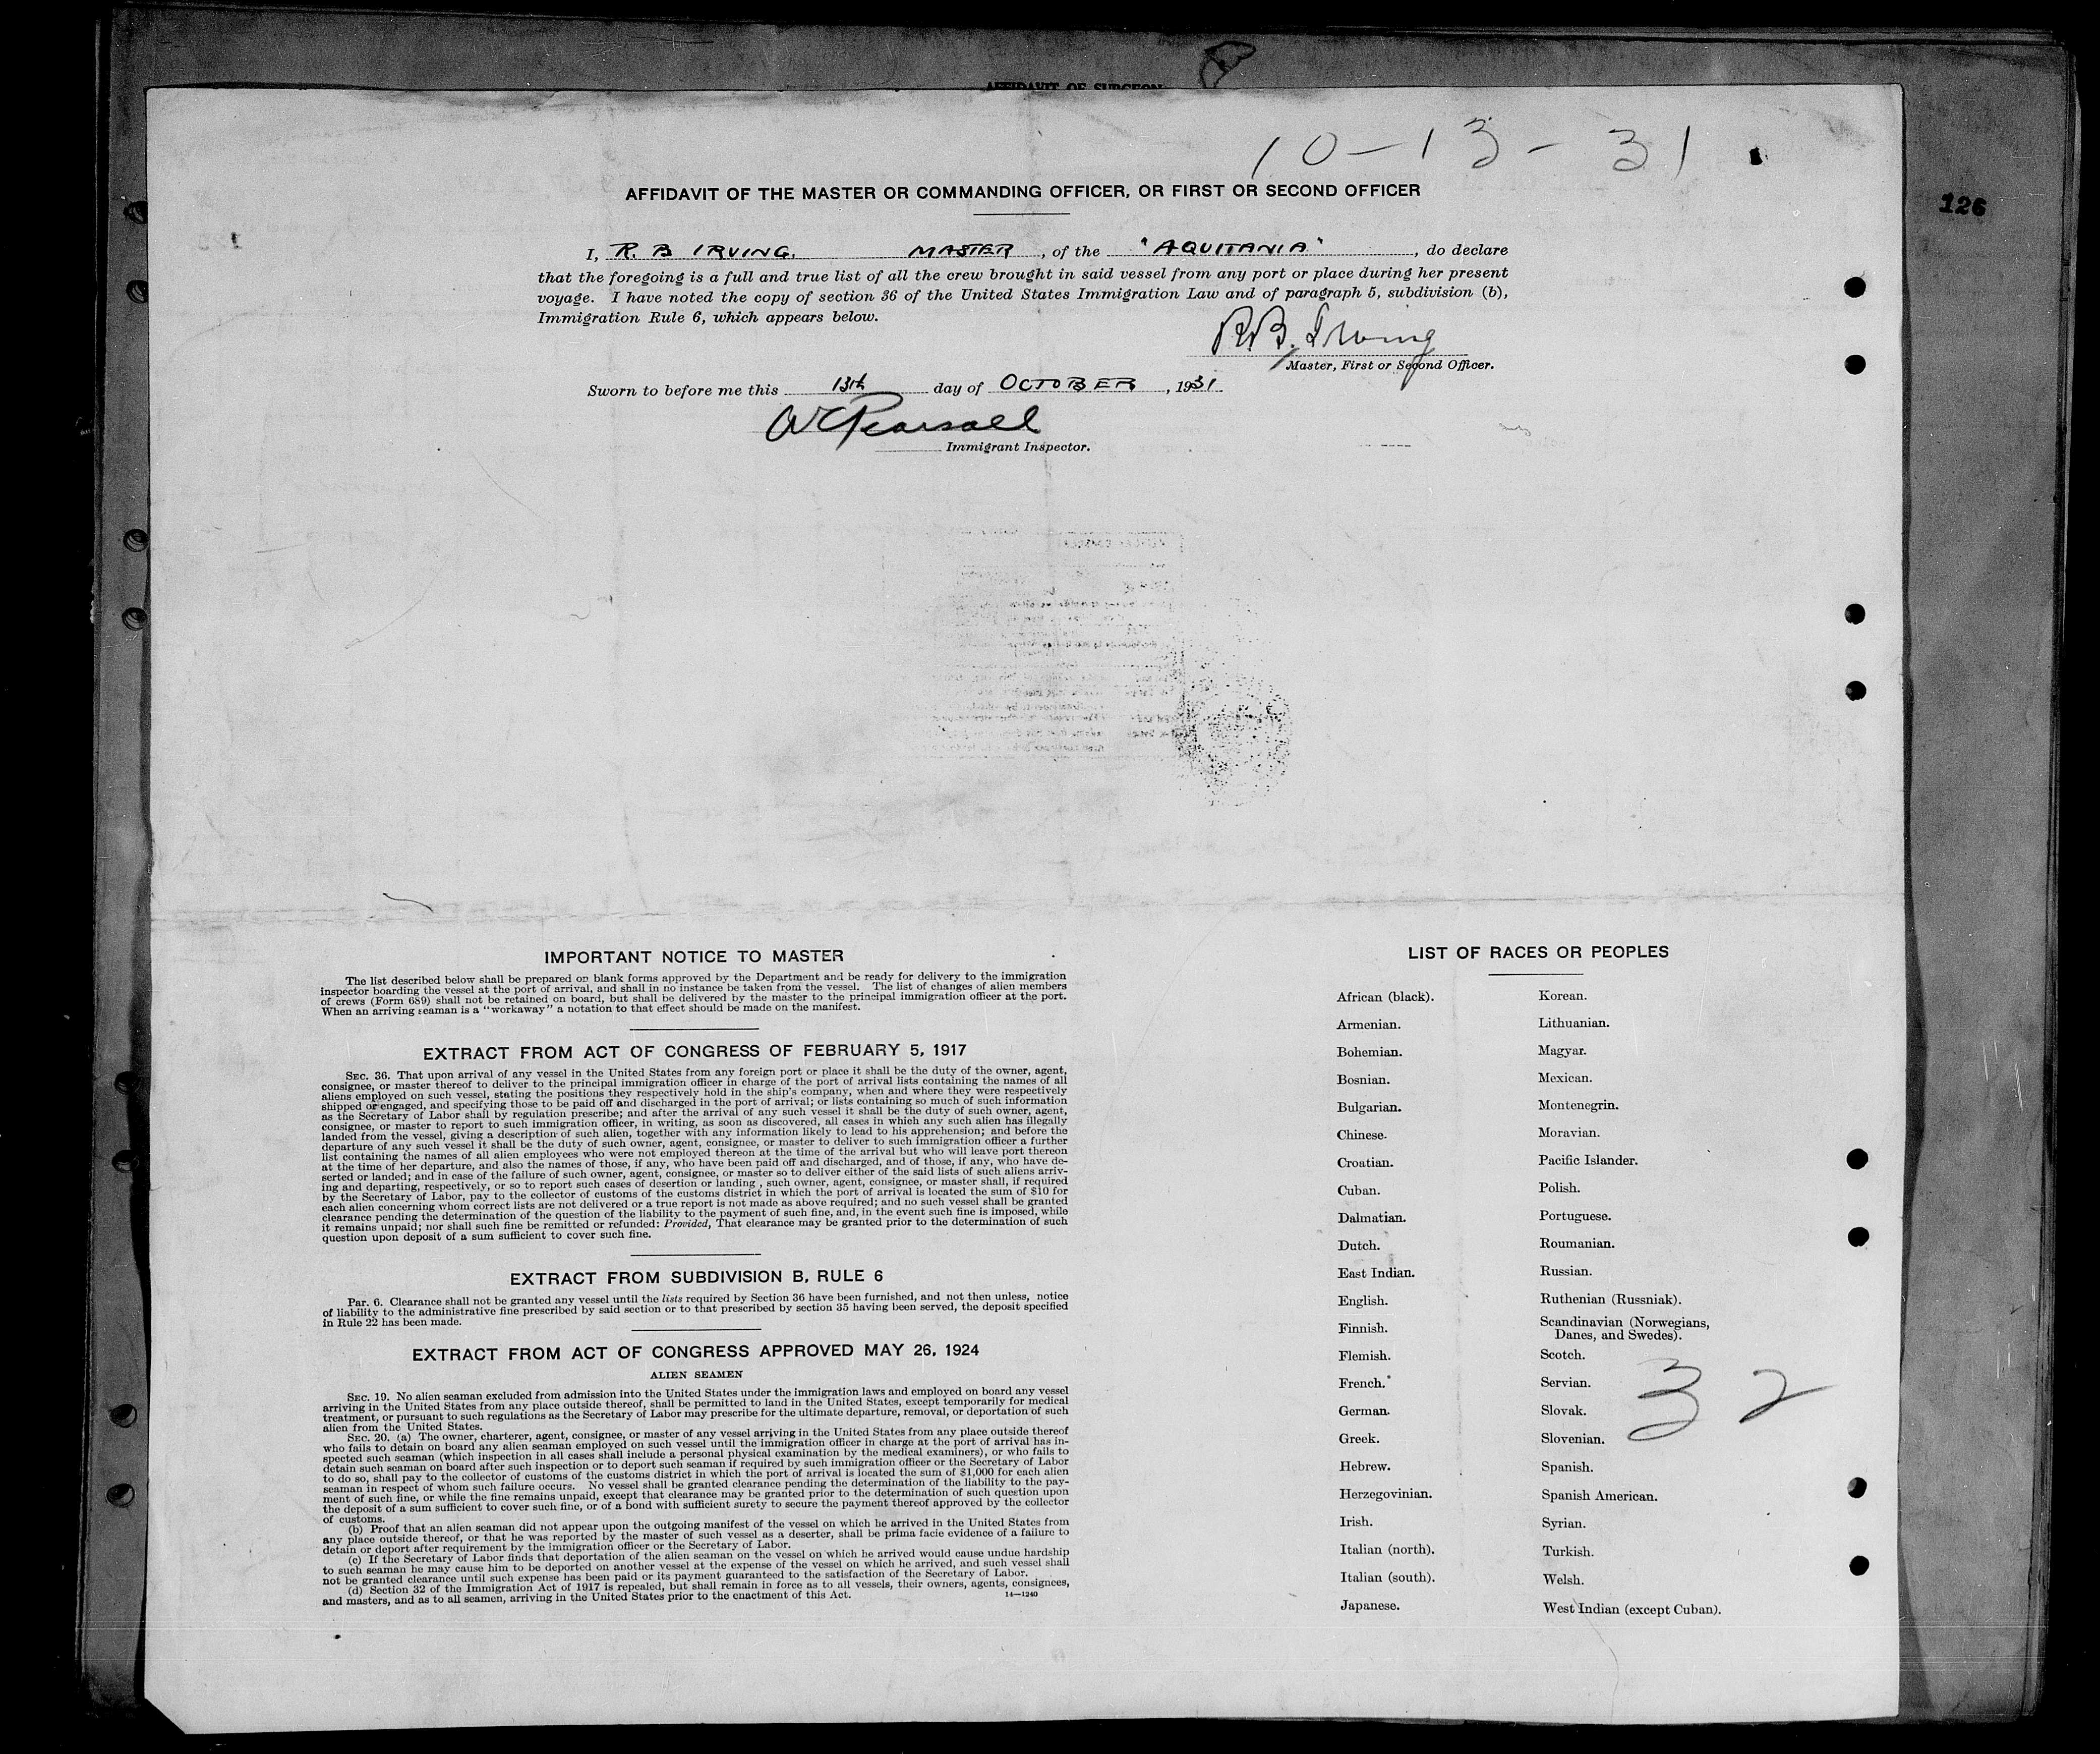 AFFIDAVIT OF SURGEON
10-13-31
126
AFFIDAVIT OF THE MASTER OR COMMANDING OFFICER, OR FIRST OR SECOND OFFICER
I, R. B IRVING. MASTER, of the "AQUITANIA", do declare
that the foregoing is a full and true list of all the crew brought in said vessel from any port or place during her present
voyage. I have noted the copy of section 36 of the United States Immigration Law and of paragraph 5, subdivision (b),
Immigration Rule 6, which appears below.
R.B. Irving
Master, First or Second Officer.
Sworn to before me this 13th day of OCTOBER, 1931
Pearsall
Immigrant Inspector.
IMPORTANT NOTICE TO MASTER
The list described below shall be prepared on blank forms approved by the Department and be ready for delivery to the immigration
inspector boarding the vessel at the port of arrival, and shall in no instance be taken from the vessel. The list of changes of alien members
of crews (Form 689) shall not be retained on board, but shall be delivered by the master to the principal immigration officer at the port.
When an arriving seaman is a "workaway" a notation to that effect should be made on the manifest.
EXTRACT FROM ACT OF CONGRESS OF FEBRUARY 5, 1917
SEC. 36. That upon arrival of any vessel in the United States from any foreign port or place it shall be the duty of the owner, agent,
consignee, or master thereof to deliver to the principal immigration officer in charge of the port of arrival lists containing the names of all
aliens employed on such vessel, stating the positions they respectively hold in the ship's company, when and where they were respectively
shipped or engaged, and specifying those to be paid off and discharged in the port of arrival; or lists containing so much of such information
as the Secretary of Labor shall by regulation prescribe; and after the arrival of any such vessel it shall be the duty of such owner, agent,
consignee, or master to report to such immigration officer, in writing, as soon as discovered, all cases in which any such alien has illegally
landed from the vessel, giving a description of such alien, together with any information likely to lead to his apprehension; and before the
departure of any such vessel it shall be the duty of such owner, agent, consignee, or master to deliver to such immigration officer a further
list containing the names of all alien employees who were not employed thereon at the time of the arrival but who will leave port thereon
at the time of her departure, and also the names of those, if any, who have been paid off and discharged, and of those, if any, who have de-
serted or landed; and in case of the failure of such owner, agent, consignee, or master so to deliver either of the said lists of such aliens arriv-
ing and departing, respectively, or so to report such cases of desertion or landing , such owner, agent, consignee, or master shall, if required
by the Secretary of Labor, pay to the collector of customs of the customs district in which the port of arrival is located the sum of $10 for
each alien concerning whom correct lists are not delivered or a true report is not made as above required; and no such vessel shall be granted
clearance pending the determination of the question of the liability to the payment of such fine, and, in the event such fine is imposed, while
it remains unpaid; nor shall such fine be remitted or refunded: Provided, That clearance may be granted prior to the determination of such
question upon deposit of a sum sufficient to cover such fine.
EXTRACT FROM SUBDIVISION B, RULE 6
Par. 6. Clearance shall not be granted any vessel until the lists required by Section 36 have been furnished, and not then unless, notice
of liability to the administrative fine prescribed by said section or to that prescribed by section 35 having been served, the deposit specified
in Rule 22 has been made.
EXTRACT FROM ACT OF CONGRESS APPROVED MAY 26, 1924
ALIEN SEAMEN
SEC. 19. No alien seaman excluded from admission into the United States under the immigration laws and employed on board any vessel
arriving in the United States from any place outside thereof, shall be permitted to land in the United States, except temporarily for medical
treatment, or pursuant to such regulations as the Secretary of Labor may prescribe for the ultimate departure, removal, or deportation of such
alien from the United States.
SEC. 20. (a) The owner, charterer, agent, consignee, or master of any vessel arriving in the United States from any place outside thereof
who fails to detain on board any alien seaman employed on such vessel until the immigration officer in charge at the port of arrival has in-
spected such seaman (which inspection in all cases shall include a personal physical examination by the medical examiners), or who fails to
detain such seaman on board after such inspection or to deport such seaman if required by such immigration officer or the Secretary of Labor
to do so, shall pay to the collector of customs of the customs district in which the port of arrival is located the sum of $1,000 for each alien
seaman in respect of whom such failure occurs. No vessel shall be granted clearance pending the determination of the liability to the pay-
ment of such fine, or while the fine remains unpaid, except that clearance may be granted prior to the determination of such question upon
the deposit of a sum sufficient to cover such fine, or of a bond with sufficient surety to secure the payment thereof approved by the collector
of customs.
(b) Proof that an alien seaman did not appear upon the outgoing manifest of the vessel on which he arrived in the United States from
any place outside thereof, or that he was reported by the master of such vessel as a deserter, shall be prima facie evidence of a failure to
detain or deport after requirement by the immigration officer or the Secretary of Labor.
(c) If the Secretary of Labor finds that deportation of the alien seaman on the vessel on which he arrived would cause undue hardship
to such seaman he may cause him to be deported on another vessel at the expense of the vessel on which he arrived, and such vessel shall
not be granted clearance until such expense has been paid or its payment guaranteed to the satisfaction of the Secretary of Labor.
(d) Section 32 of the Immigration Act of 1917 is repealed, but shall remain in force as to all vessels, their owners, agents, consignees,
and masters, and as to all seamen, arriving in the United States prior to the enactment of this Act.
14—1240
LIST OF RACES OR PEOPLES
African (black).
Armenian.
Bohemian.
Bosnian.
Bulgarian.
Chinese.
Croatian.
Cuban.
Dalmatian.
Dutch.
East Indian.
English.
Finnish.
Flemish.
French.
German.
Greek.
Hebrew.
Herzegovinian.
Irish.
Italian (north).
Italian (south).
Japanese.
Korean.
Lithuanian.
Magyar.
Mexican.
Montenegrin.
Moravian.
Pacific Islander.
Polish.
Portuguese.
Roumanian.
Russian.
Ruthenian (Russniak).
Scandinavian (Norwegians,
Danes, and Swedes).
Scotch.
Servian.
Slovak.
Slovenian.
Spanish.
Spanish American.
Syrian.
Turkish.
Welsh.
West Indian (except Cuban).
32